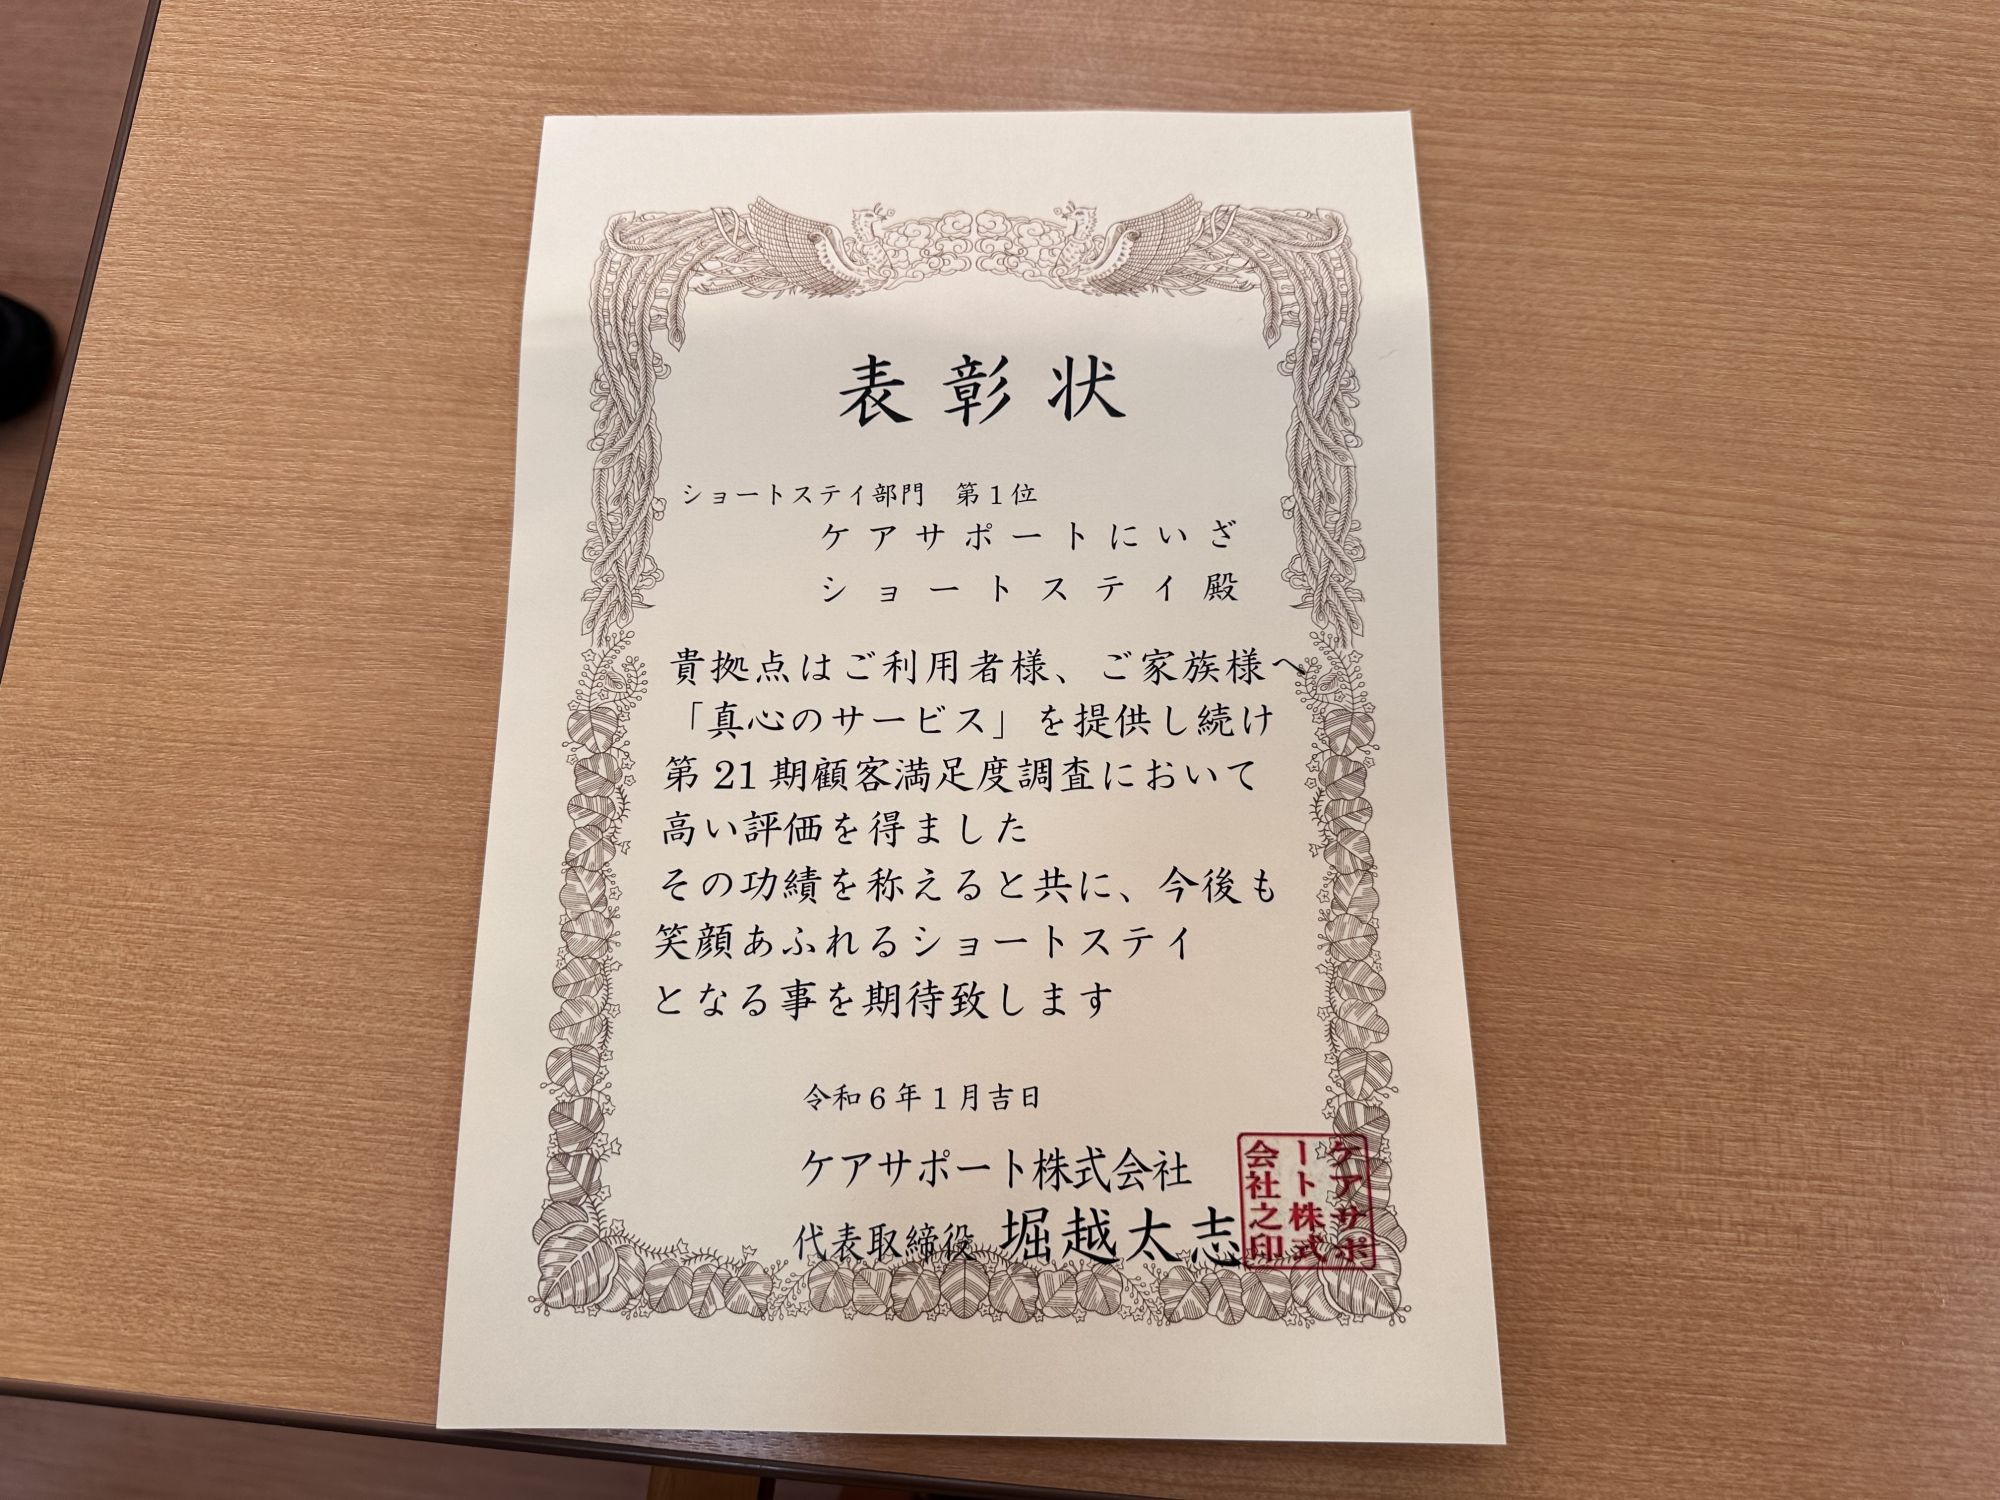 表彰状
ショートステイ部門　第1位
ケアサポートにいざ
ショートステイ殿
貴拠点はご利用者様、ご家族様へ
「真心のサービス」を提供し続け
第21期顧客満足度調査において
高い評価を得ました
その功績を称えると共に、今後も
笑顔あふれるショートステイ
となる事を期待致します
令和6年1月吉日
ケアサポート株式会社
代表取締役 堀越太志
ケアサポ
ート株式
会社之印